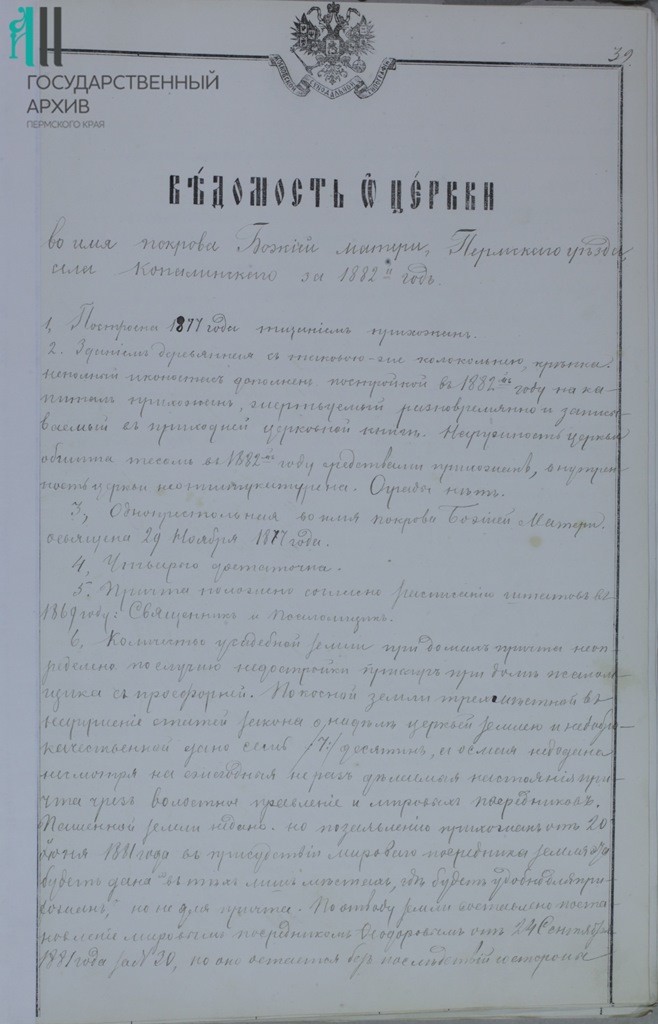 ГОСУДАРСТВЕННЫЙ
АРХИВ
ПЕРМСКОГО КРАЯ
39
ВѢДОМОСТЬ Ѡ ЦЕРКВИ
во имя покрова Божіей матери, Пермскаго уѣзда,
села Копалинскаго за 1882й годъ.
1, Построена 1877 года тщаніемъ прихожанъ.
2. Зданіемъ деревянная съ таковою-же колокольнею, крѣпка.
неполный иконостасъ дополненъ постройкой въ 1882мъ году на ка-
питалъ прихожанъ, жертвуемый разновремянно и записы-
ваемый въ приходной церковной книгѣ. Наружность церкви
обшита тесомъ въ 1882мъ году средствами прихожанъ, внутрен-
ность церкви неотштукатурена. Ограды нѣтъ.
3, Однопристольная во имя покрова Божіей Матери.
освящена 29 Ноября 1877 года.
4, Утварью достаточна.
5. Причта положено согласно росписанію штатовъ въ
1869 году: Священникъ и Псаломщикъ.
6, Количество усадебной земли при домахъ причта неоп-
редѣлено по случаю недостройки при домѣ псалом-
щика съ просфорней. Покосной земли въ
нарушеніе статей закона о надѣлѣ церквей землею и недобро-
качественной дано семь /7/ десятинъ, и осмая недодана
несмотря на ежегодныя настоянія при-
чта чрезъ волостное правленіе и мировыхъ посредниковъ.
Пашенной земли недано. но по заявленію прихожанъ отъ 20
1881 года въ присудствіи мироваго посредника земля
будетъ дана "въ тѣхъ лишь мѣстахъ, гдѣ будетъ удобна для при-
хожанъ," но не для причта. По отводу земли поставлено поста-
новленіе мировымъ посредникомъ Ѳедоровымъ отъ 24 Сентября
1881 года за № 30, но оно остается безъ послѣдствій со стороны